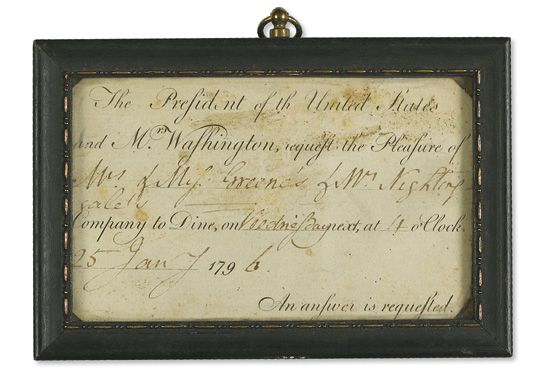 The President of th United States
and Mrs. Washington, request the Pleasure of
Mrs & Greene's & Mr Nightin
gale's
Company to Dine, on Wednesday next, at 4 o'Clock.
25 Jany 1796.
An answer is requested.